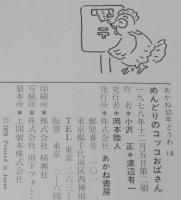 あかね幼年どうわ 14
めんどりのコッコおばさん
一九七八年十二月五日第二刷
作者●小沢 正●渡辺有一
発行者●岡本陸人
発行所●株式会社 あかね書房
郵便番号 一〇一
東京都千代田区西神田
TEL 東京 二六三
振替 東京
印刷所●株式会社 精興社
写植所●株式会社 田下フォト
製本所●土開製本株式会社
© 1976 Printed in Japan